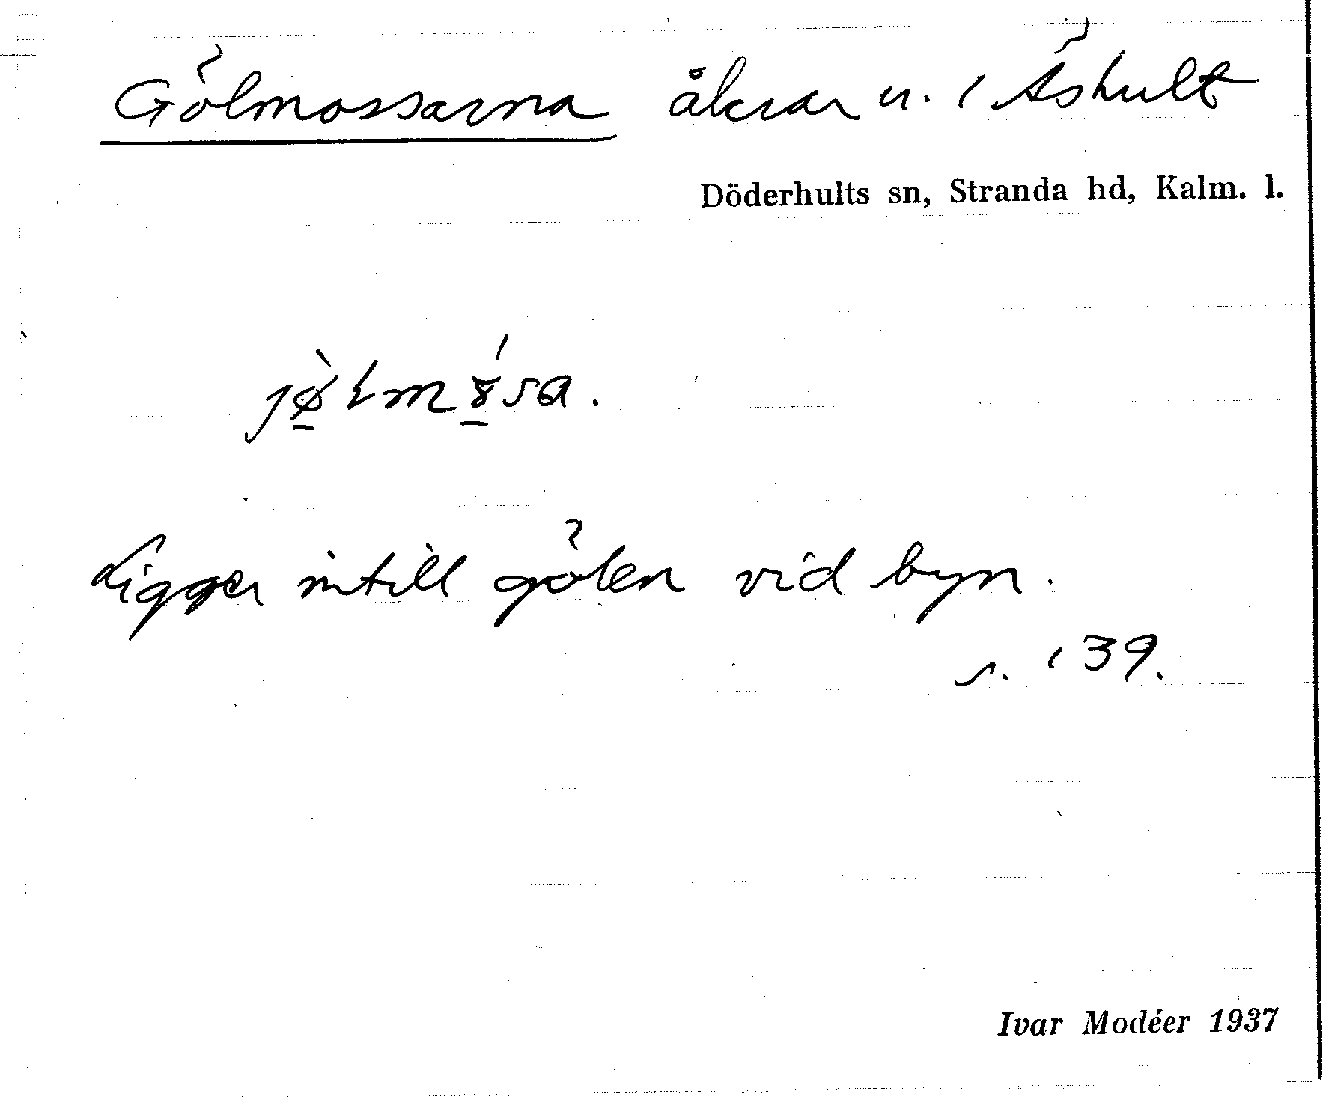 Gölmossarna åkrar u. / Äshult
Döderhults sn, Stranda hd, Kalm. l.
jø̠̀ɫmɤ̠́sa.
Ligger intill gölen vid byn.
s. 139.
Ivar Modéer 1937